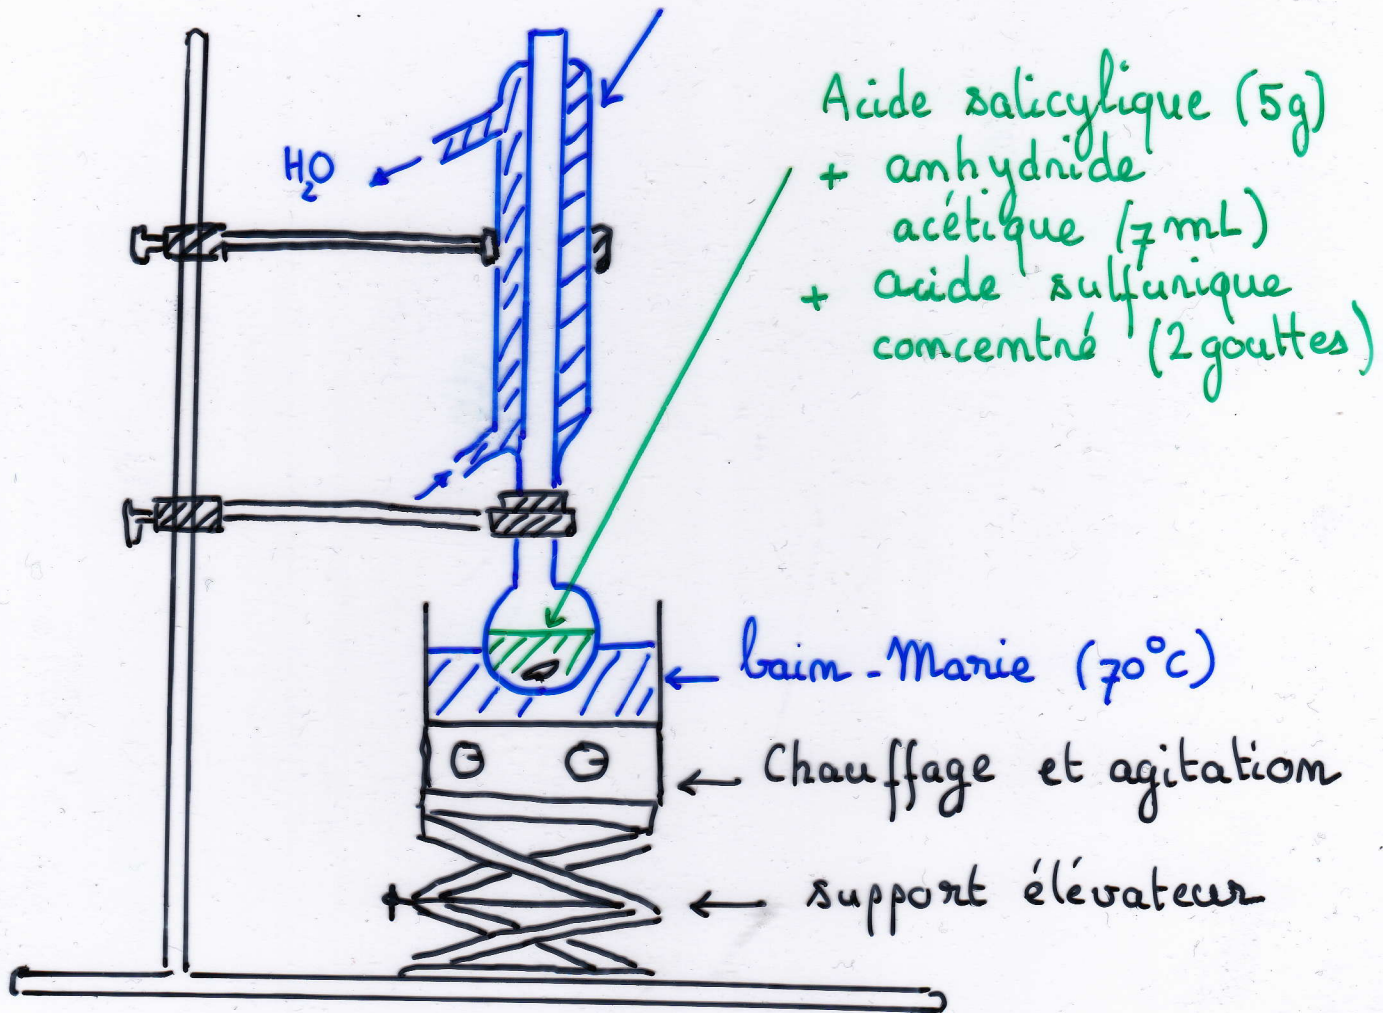 H₂O
Acide salicylique (5g)
+ anhydride
acétique (7mL)
+ acide sulfurique
concentré (2 gouttes)
bain-Marie (70°C)
Chauffage et agitation
support élévateur